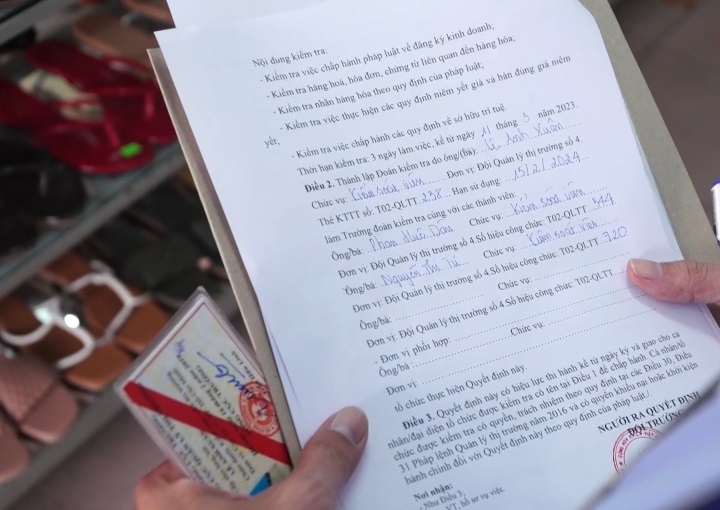 Nội dung kiểm tra:
- Kiểm tra việc chấp hành pháp luật về đăng ký kinh doanh;
- Kiểm tra hàng hoá, hóa đơn, chứng từ liên quan đến hàng hóa;
- Kiểm tra nhãn hàng hóa theo quy định của pháp luật;
- Kiểm tra việc thực hiện các quy định niêm yết giá và bán đúng giá niêm
yết;
- Kiểm tra việc chấp hành các quy định về sở hữu trí tuệ.
Thời hạn kiểm tra: 3 ngày làm việc, kể từ ngày 11 tháng 3 năm 2023.
Điều 2. Thành lập Đoàn kiểm tra do ông/(bà): Lê Anh Xuân
Chức vụ: Kiểm soát viên Đơn vị: Đội Quản lý thị trường số 4
Thẻ KTTT số: T02-QLTT 238 Hạn sử dụng: 15/2/2024
làm Trưởng đoàn kiểm tra cùng với các thành viên:
Ông/bà: Phan Chức vụ: Kiểm soát viên
Đơn vị: Đội Quản lý thị trường số 4 Số hiệu công chức: T02-QLTT 544
Ông/bà: Nguyễn Thị Tú Chức vụ: Kiểm soát viên
Đơn vị: Đội Quản lý thị trường số 4 Số hiệu công chức: T02-QLTT 720
Ông/bà: Chức vụ:
Đơn vị: Đội Quản lý thị trường số 4 Số hiệu công chức: T02-QLTT
- Đơn vị phối hợp:
Ông/bà Chức vụ:
Đơn vị:
tổ chức thực hiện Quyết định này.
Điều 3. Quyết định này có hiệu lực thi hành kể từ ngày ký và giao cho cá
nhân/đại diện tổ chức được kiểm tra có tên tại Điều 1 để chấp hành. Cá nhân/tổ
chức được kiểm tra có quyền, trách nhiệm theo quy định tại các Điều 30, Điều
31 Pháp lệnh Quản lý thị trường năm 2016 và có quyền khiếu nại hoặc khởi kiện
hành chính đối với Quyết định này theo quy định của pháp luật./.
NGƯỜI RA QUYẾT ĐỊNH
ĐỘI TRƯỞNG
Nơi nhận:
- Như Điều 3;
VT, hồ sơ vụ việc.